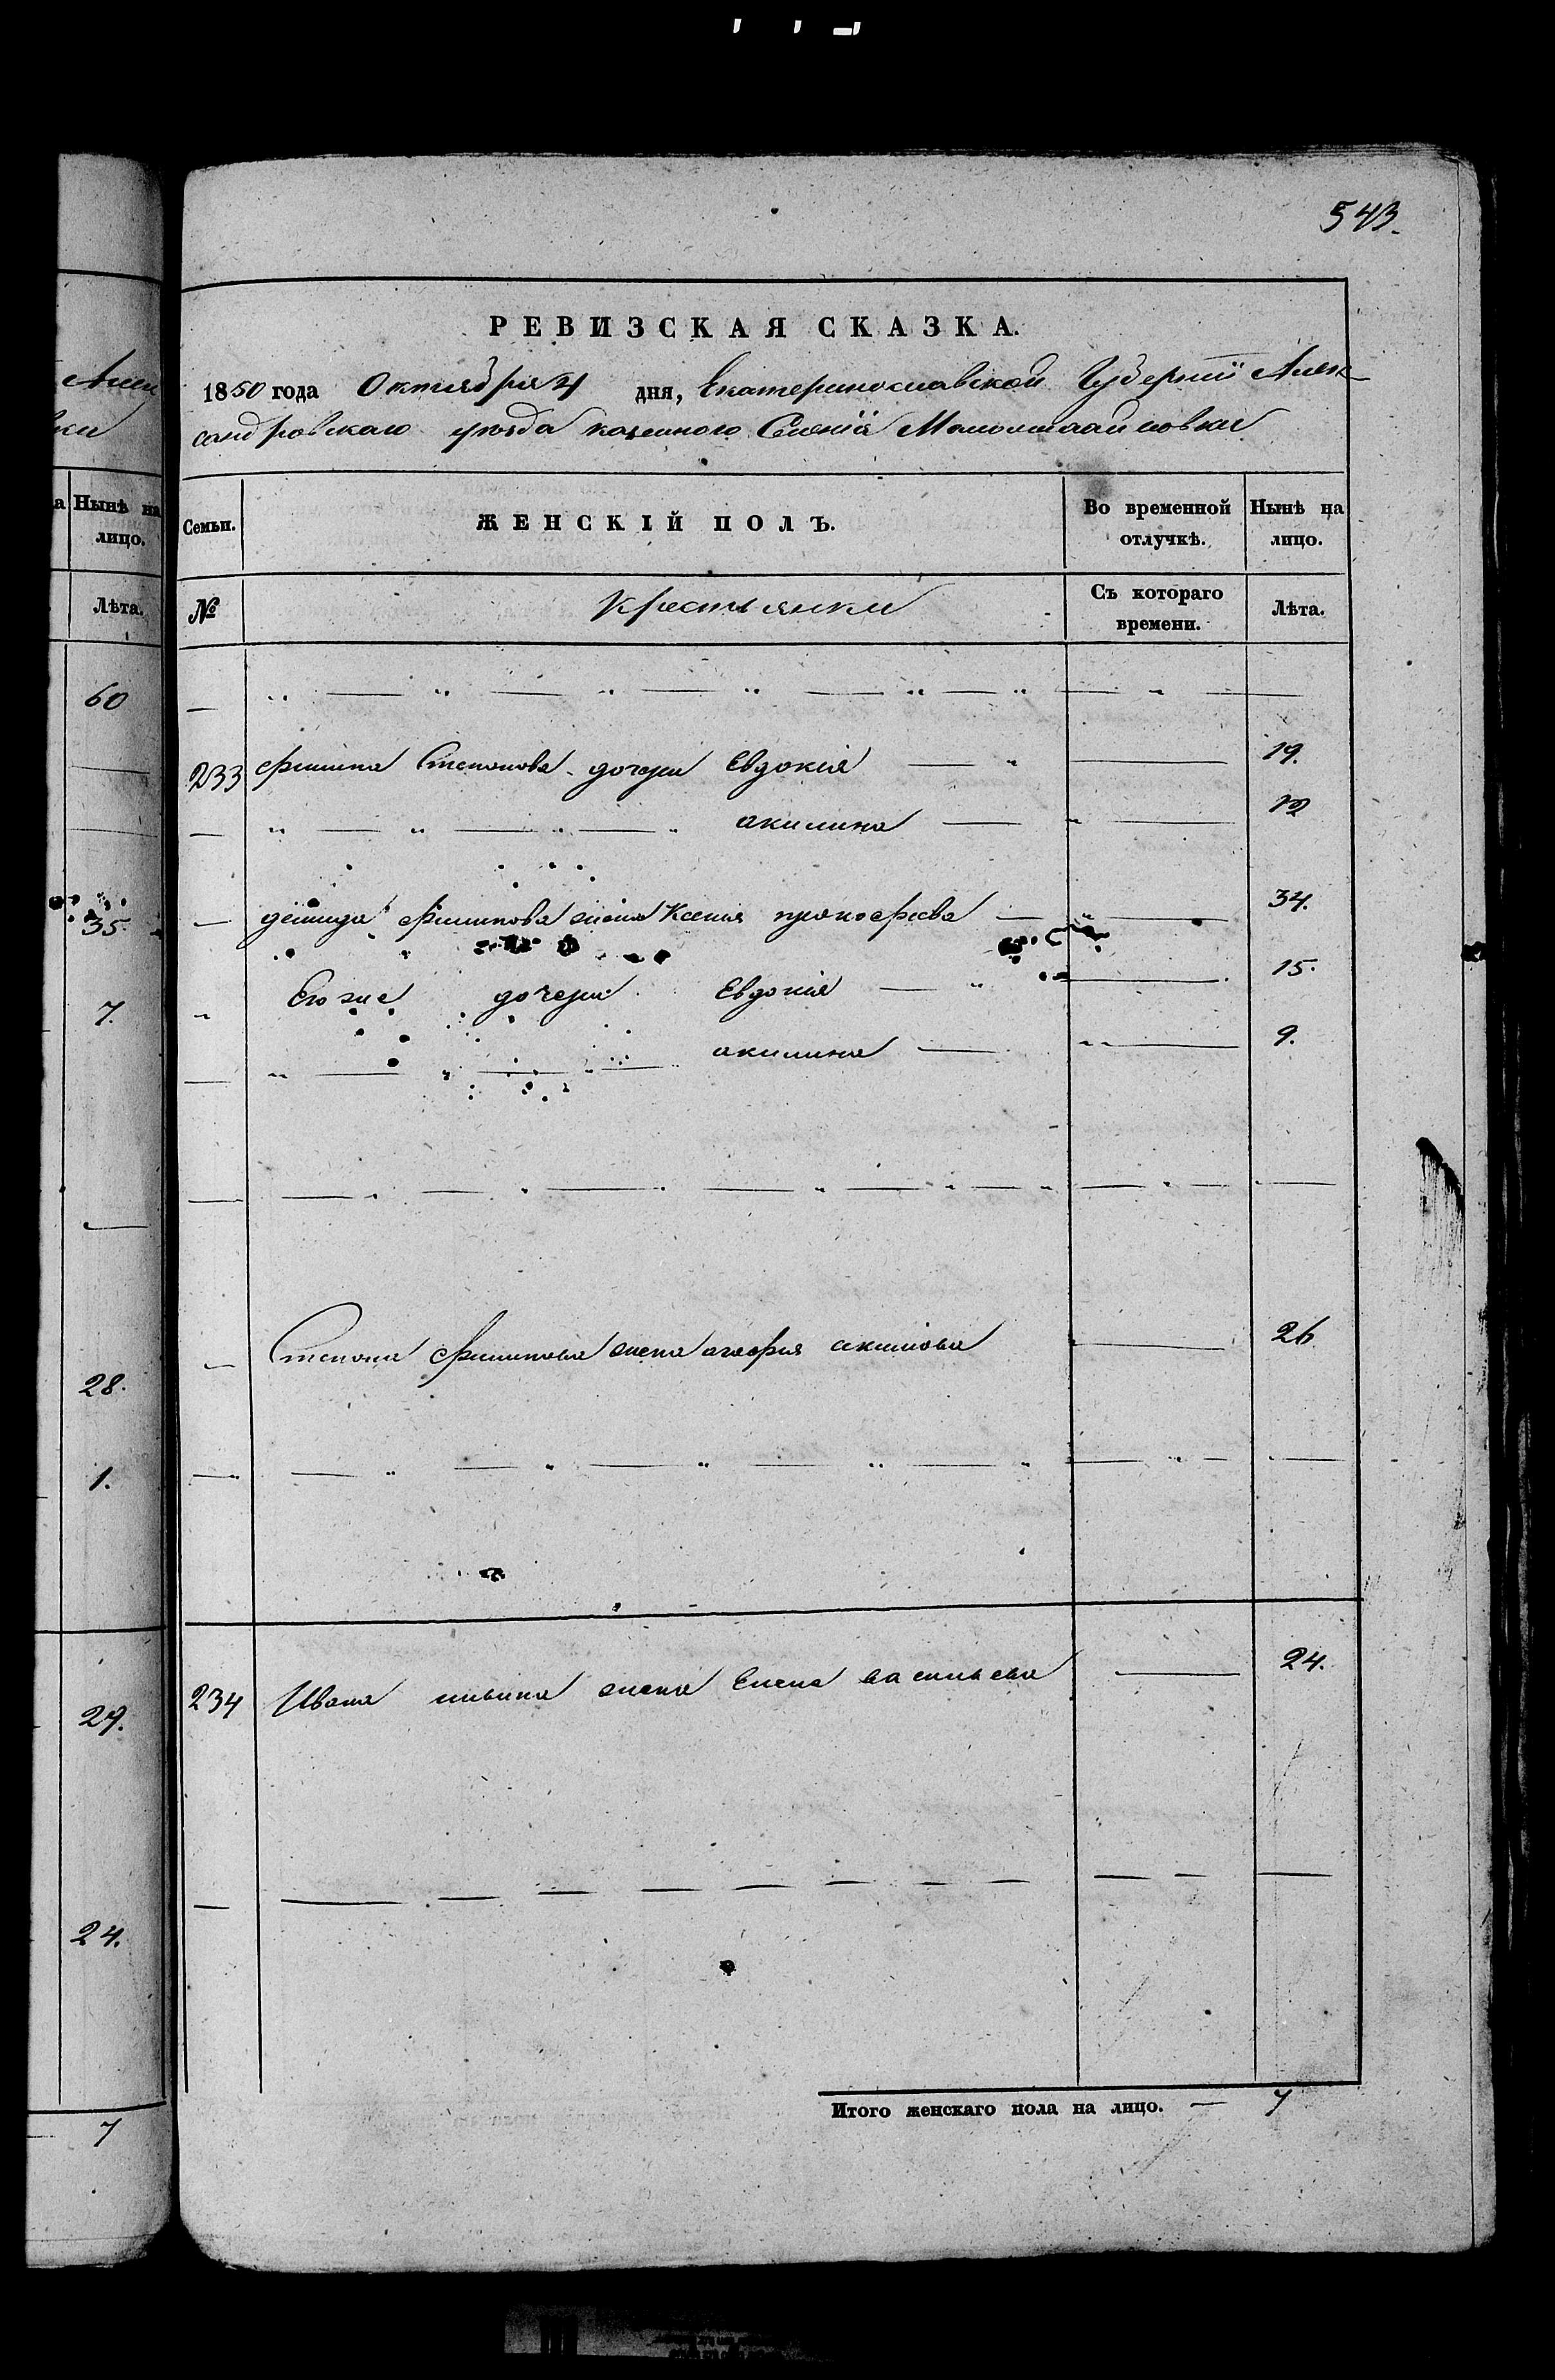 543.
РЕВИЗСКАЯ СКАЗКА.
1850 года Октября 4 дня, Екатеринославской Губерніи Алек-
сандровскаго уѣзда казенного Селенія
Семьи. ЖЕНСКІЙ ПОЛЪ. Во временной отлучкѣ. Нынѣ на лицо.
№ Крестьянки Съ котораго времени. Лѣта.
233 Филипа Степанова дочери Евдокія 19.
акилина 12
демида Филипова жена Ксенія прокофиева 34.
Его же дочери Евдокія 15.
акилина 9.
Степана Филипова жена агафия акимова 26
234 Ивана жена Елена васильева 24.
Итого женскаго пола на лицо. — 7
Нынѣ на
лицо.
Лѣта.
60
35.
7.
28.
1.
29.
24.
7